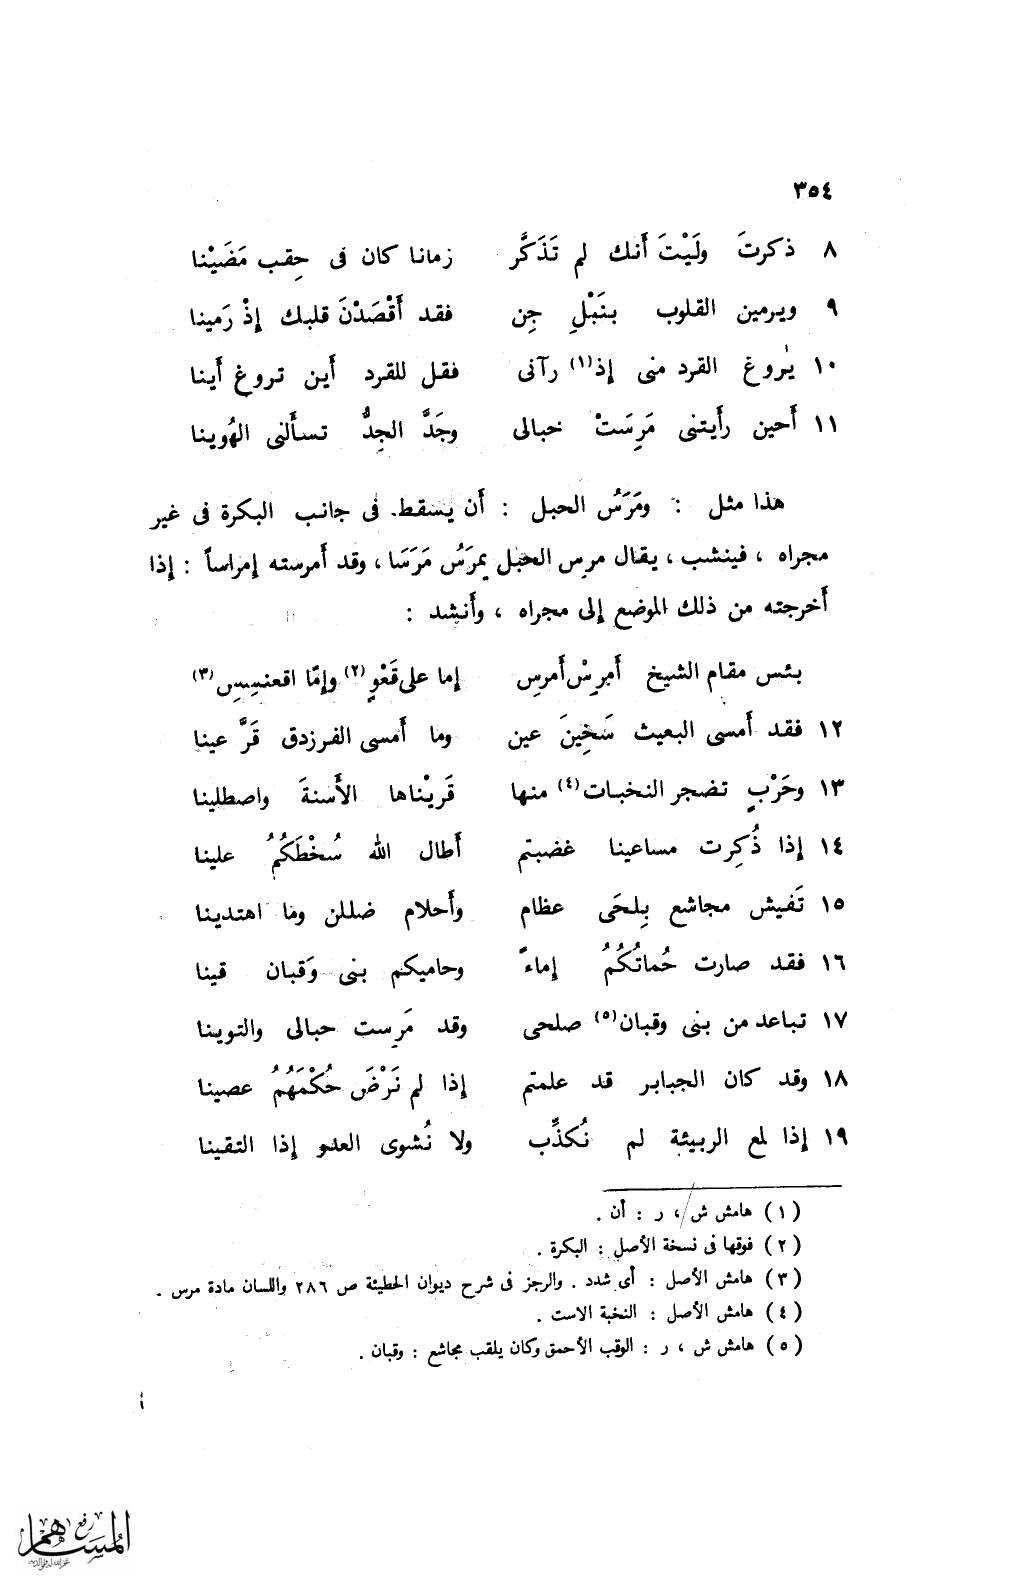 ٣٥٤
٨ ذكرتَ ولَيْتَ أَنك لم تَذَكَّر زمانا كان فى حِقب مَضَيْنا
٩ ويرمين القلوب بنَبْلِ جِن فقد أَقْصَدْنَ قلبك إِذْ رَمينا
١٠ يَروغ القرد منى إِذ(١) رآنى فقل للقرد أَين تروغ أَينا
١١ أَحين رأَيتنى مَرِسَتْ حبالى وجَدَّ الجِدُّ تسأَلنى الهُوينا
هذا مثل : ومَرَسُ الحبل : أَن يسقط فى جانب البكرة فى غير
مجراه ، فينشب ، يقال مرِس الحبل يمرَسُ مَرَسَا ، وقد أَمرسته إِمراساً : إِذا
أَخرجته من ذلك الموضع إِلى مجراه ، وأَنشد :
بئس مقام الشيخ أَمرِسْ أَمرِس إِما على قَعْوٍ(٢) وإِمّا اقعنسِسِ(٣)
١٢ فقد أَمسى البعيث سَخِينَ عين وما أَمسى الفرزدق قَرَّ عينا
١٣ وحَرْبٍ تضجر النخبات(٤) منها قَرَيْناها الأَسنةَ واصطلينا
١٤ إِذا ذُكِرت مساعينا غضبتم أَطال الله سُخْطَكُمُ علينا
١٥ تَفيش مجاشع بِلحَى عظام وأَحلام ضللن وما اهتدينا
١٦ فقد صارت حُماتُكُمُ إِماءً وحاميكم بنى وَقبان قينا
١٧ تباعد من بنى وقبان(٥) صلحى وقد مَرِست حبالى والتوينا
١٨ وقد كان الجبابر قد علمتم إِذا لم نَرْضَ حُكْمَهُمُ عصينا
١٩ إِذا لمع الربيئة لم نُكذِّب ولا نُشوى العدو إِذا التقينا
(١) هامش ش ، ر : أن .
(٢) فوقها فى نسخة الأصل : البكرة .
(٣) هامش الأصل : أى شدد . والرجز فى شرح ديوان الحطيئة ص ٢٨٦ واللسان مادة مرس .
(٤) هامش الأصل : النخبة الاست .
(٥) هامش ش ، ر : الوقب الأحمق وكان يلقب مجاشع : وقبان .
رفع
المساهم